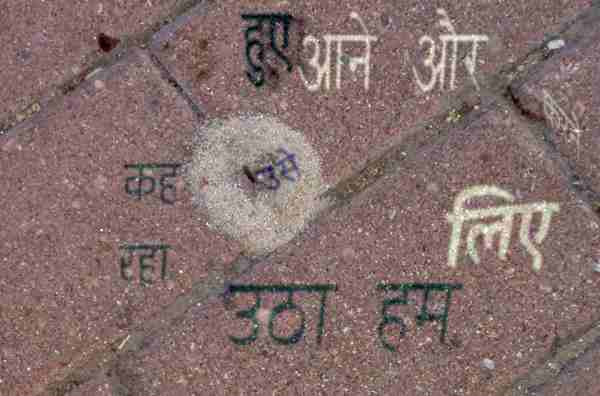 हुए आने और
कह उसे
लिए
रहा
उठा हम